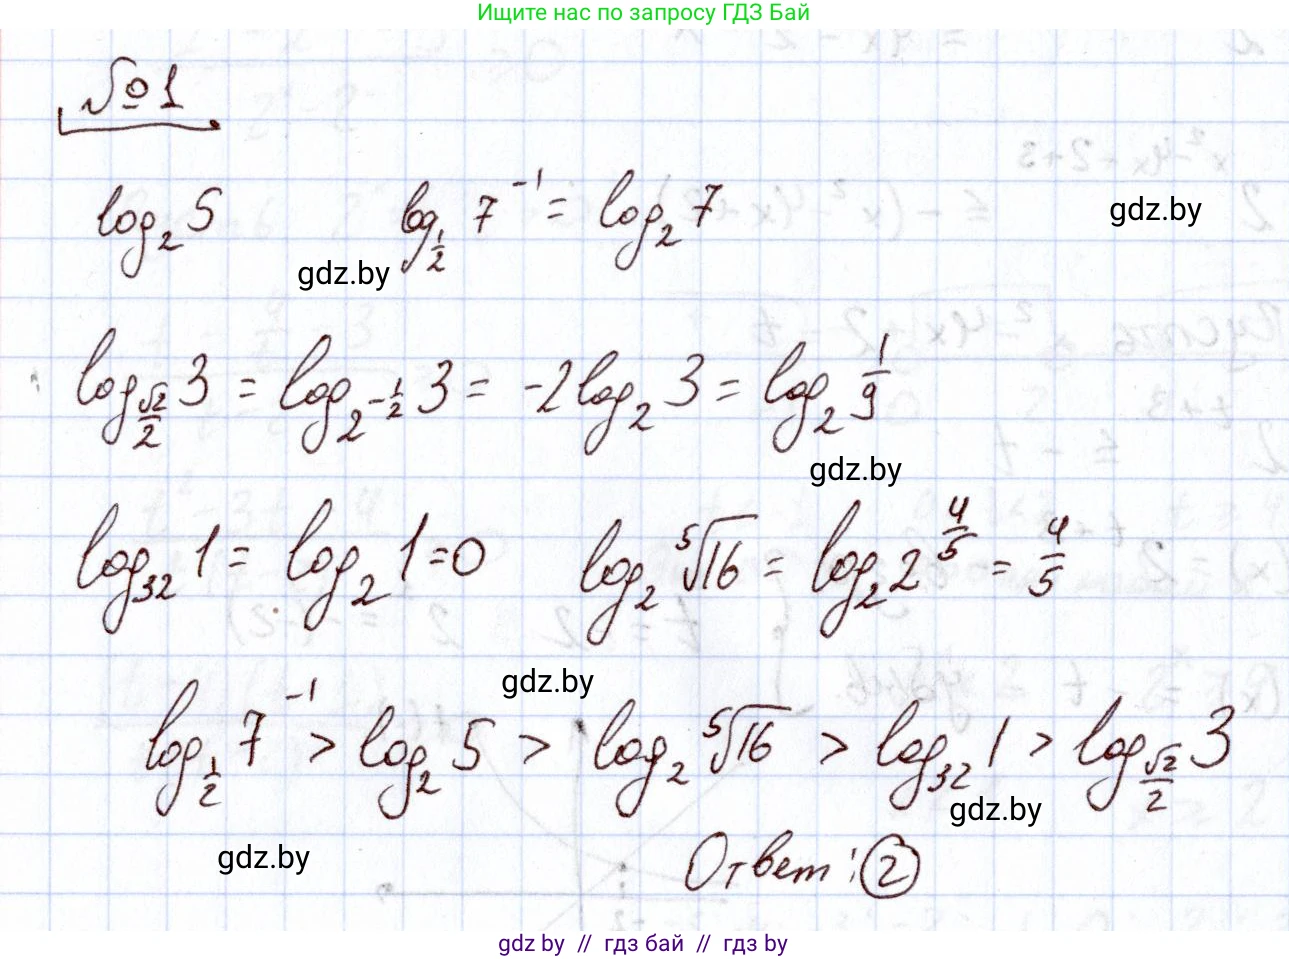 Ищите нас по запросу ГДЗ Бай
№1
log₂ 5    log_{1/2} 7⁻¹ = log₂ 7
gdz.by
gdz.by
log_{√2/2} 3 = log_{2^{-1/2}} 3 = -2 log₂ 3 = log₂ 1/9
gdz.by
log₃₂ 1 = log₂ 1 = 0    log₂ ⁵√16 = log₂ 2^{4/5} = 4/5
gdz.by
log_{1/2} 7⁻¹ > log₂ 5 > log₂ ⁵√16 > log₃₂ 1 > log_{√2/2} 3
gdz.by
gdz.by
Ответ: 2
gdz by // гдз бай // гдз by